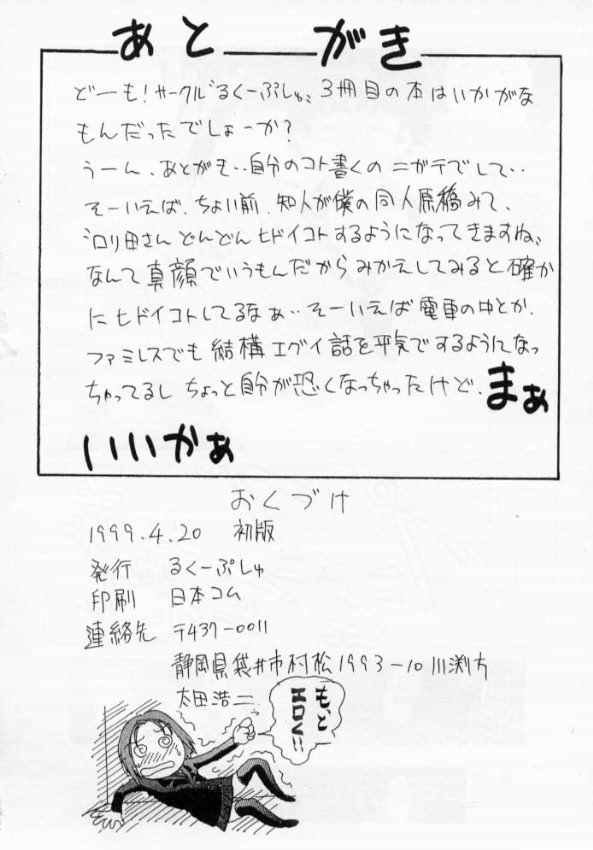 あとがき
どーも!サークル゛るくーぷしゅ、3冊目の本はいかがな
もんだったでしょーか?
うーん、あとがき‥自分のコト書くのニガテでして‥
そーいえば、ちょい前、知人が僕の同人原稿みて、
゛ロリ田さんどんどんヒドイコトするようになってきますね、
なんて真顔でいうもんだからみかえしてみると確か
にヒドイコトしてるなぁ‥そーいえば電車の中とか、
ファミレスでも結構エグイ話を平気でするようになっ
ちゃってるし ちょっと自分が恐くなっちゃったけど、まぁ
いいかぁ
おくづけ
1999.4.20 初版
発行 るくーぷしゅ
印刷 日本コム
連絡先 〒437-0011
静岡県袋井市村松1993-10 川渕方
太田浩二
も、と